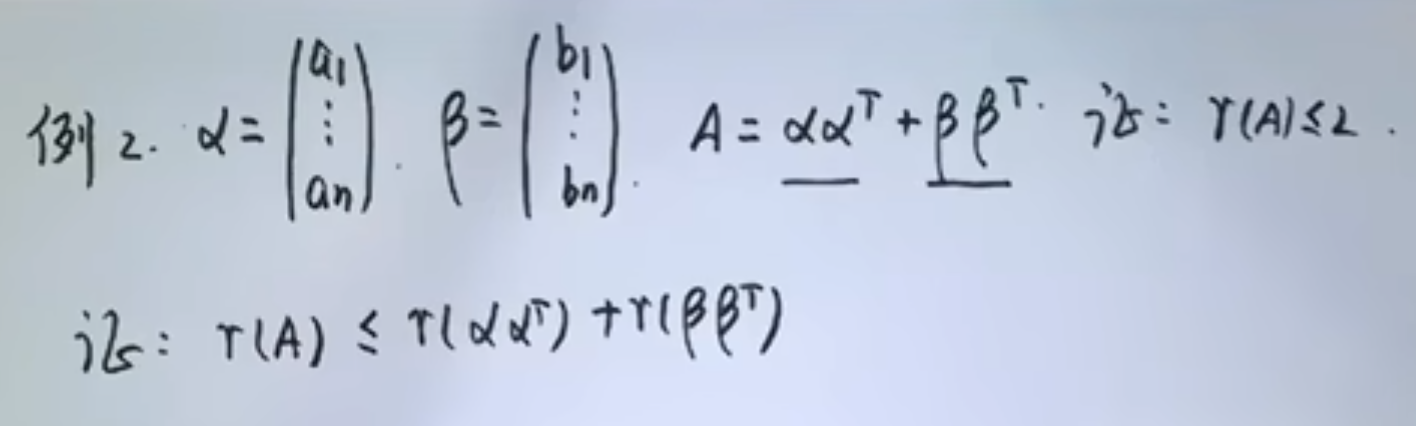 例2. α = (a1 ⋮ an). β = (b1 ⋮ bn). A = αα^T + ββ^T. 证: r(A) ≤ 2.
证: r(A) ≤ r(αα^T) + r(ββ^T)